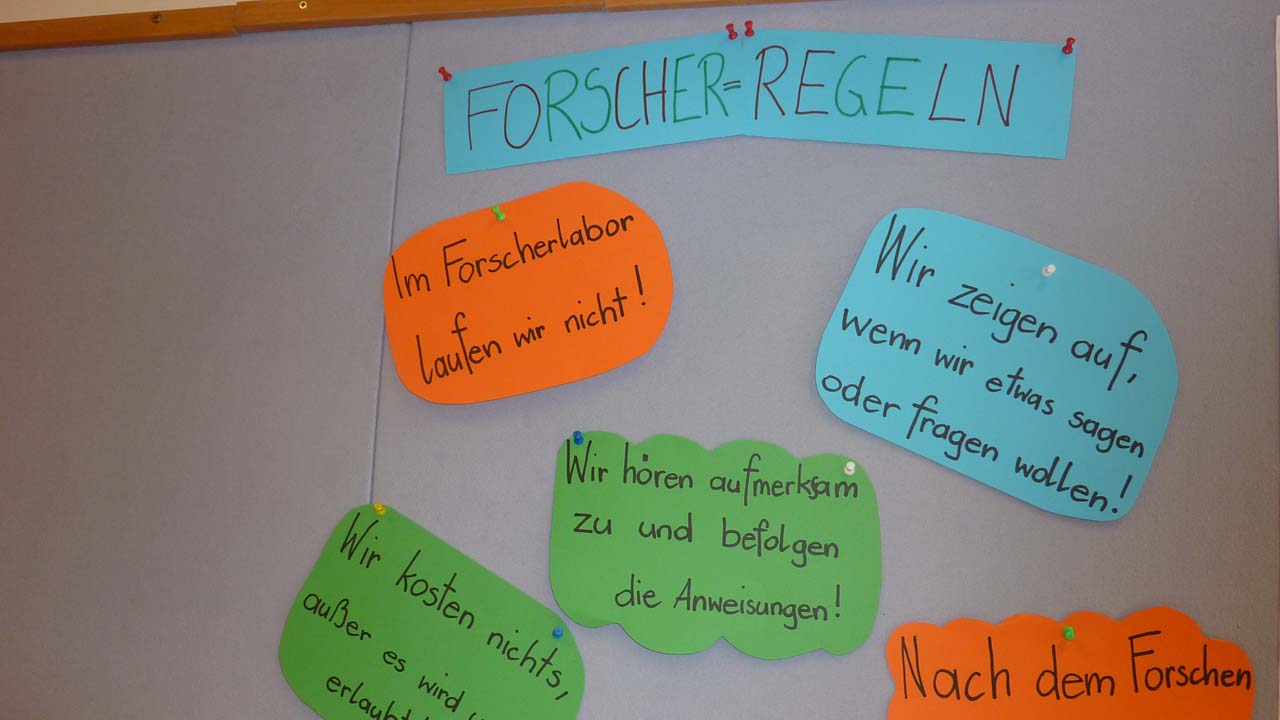 FORSCHER=REGELN
Im Forscherlabor
laufen wir nicht!
Wir zeigen auf,
wenn wir etwas sagen
oder fragen wollen!
Wir hören aufmerksam
zu und befolgen
die Anweisungen!
Wir kosten nichts,
außer es wird
erlaubt
Nach dem Forschen